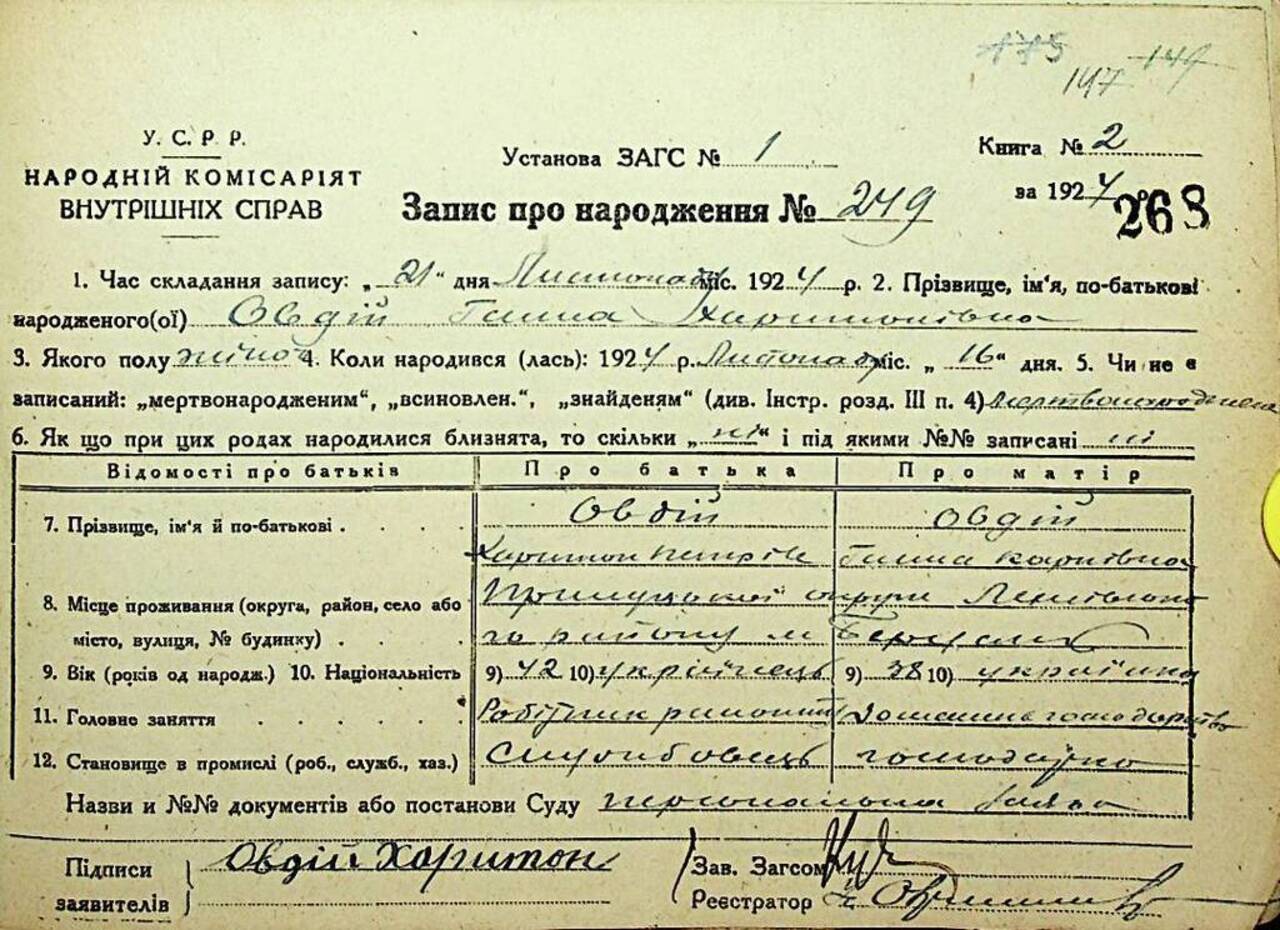 175 147 149
У. С. Р. Р.
НАРОДНІЙ КОМІСАРІЯТ
ВНУТРІШНІХ СПРАВ
Установа ЗАГС № 1
Книга № 2
за 1924
268
Запис про народження № 249
1. Час складання запису: „21“ дня Листопад міс. 1924 р. 2. Прізвище, ім'я, по-батькові
народженого(ої) Овдій Ганна Харитонівна
3. Якого полу жіноч 4. Коли народився (лась): 1924 р. Листопад міс. „16“ дня. 5. Чи не є
записаний: „мертвонародженим“, „всиновлен.“, „знайденям“ (див. Інстр. розд. III п. 4) мертвонароджена
6. Як що при цих родах народилися близнята, то скільки „ні“ і під якими №№ записані ні
Відомості про батьків Про батька Про матір
7. Прізвище, ім'я й по-батькові . . . . Овдій Овдій
Харитон Петрів Ганна Карпівна
8. Місце проживання (округа, район, село або Прилуцької округи
місто, вулиця, № будинку) . . го району м
9. Вік (років од народж.) 10. Національність 9) 42 10) українець 9) 38 10) українка
11. Головне заняття . . . . . . Робітник Домашнє господарство
12. Становище в промислі (роб., служб., хаз.) Службовець
Назви и №№ документів або постанови Суду персональна заява
Підписи Овдій Харитон
заявителів
Зав. Загсом
Реєстратор